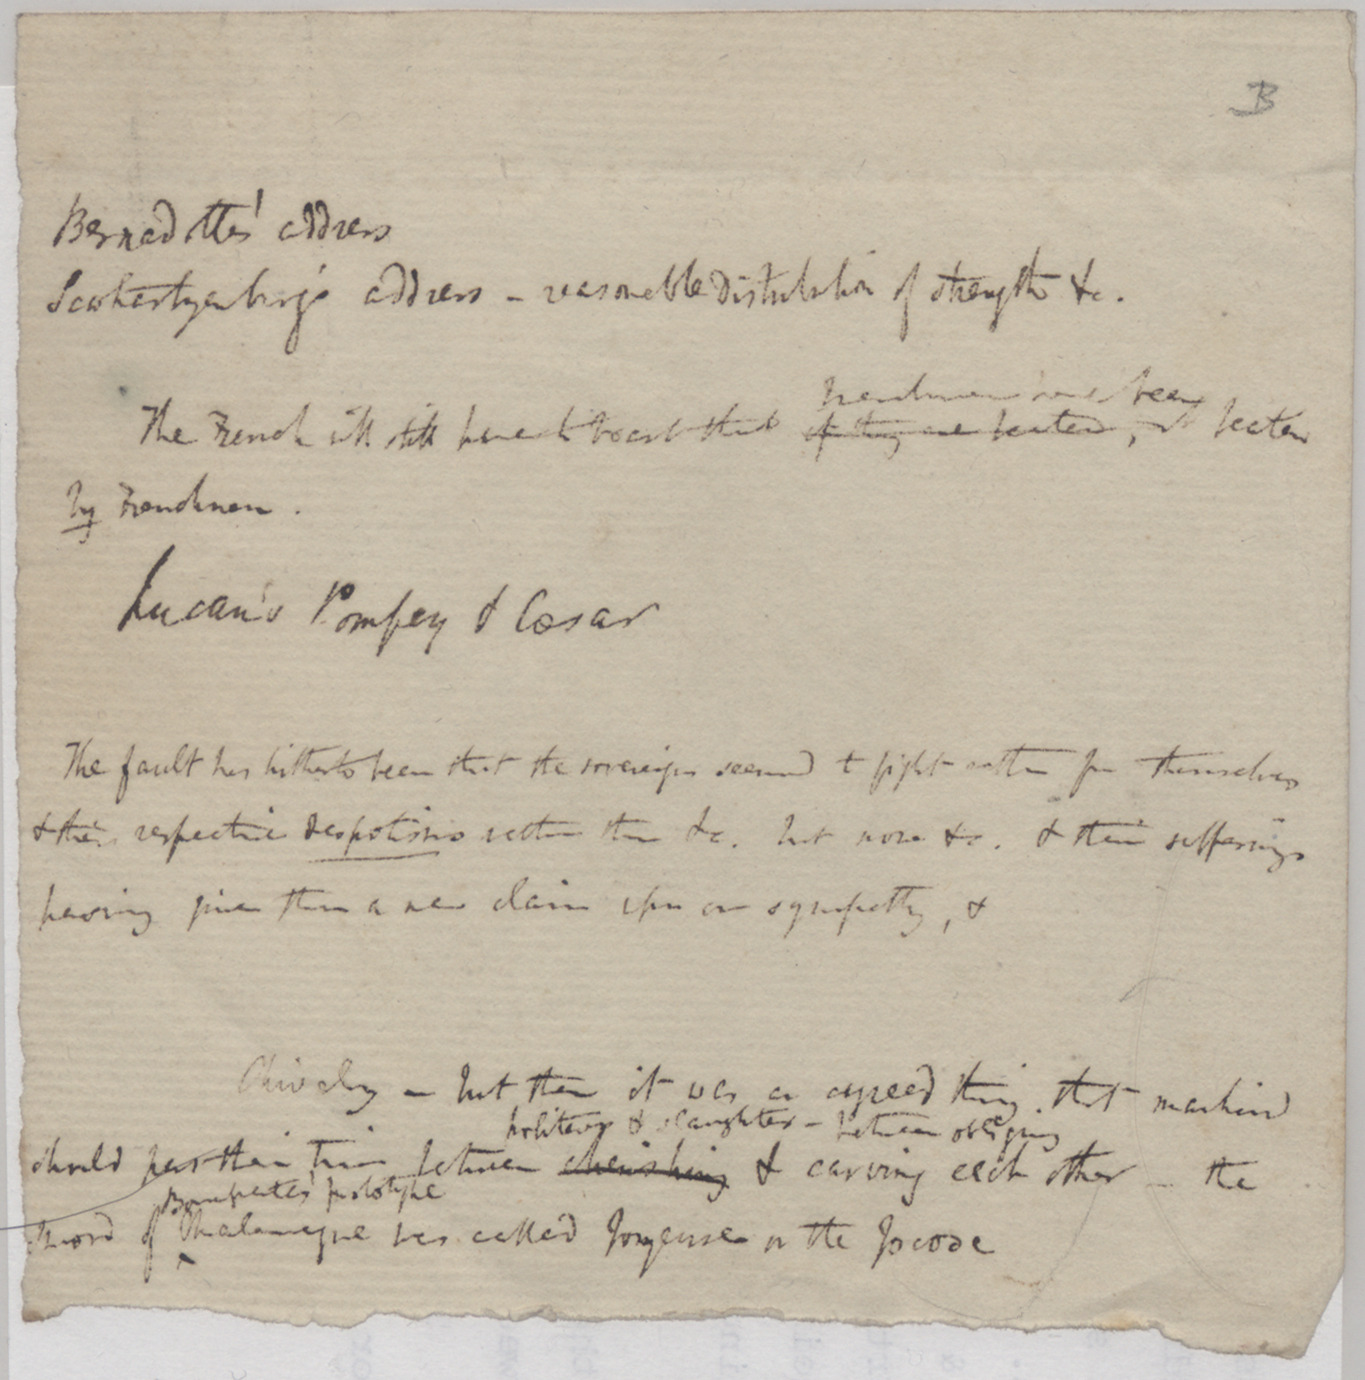 B
Bernadotte's address
Scwhartzenberg's address - reasonable distribution of strength &c.
Frenchmen have been
The French will still have to boast that if they are beaten, it beaten
by Frenchmen.
Lucan's Pompey & Cæsar
The fault has hitherto been that the sovereigns seemed to fight rather for themselves
& their respective despotisms rather than &c. but now &c. & their sufferings
having given them a new claim upon our sympathy, &
Chivalry - but then it was an agreed thing that mankind
politeness & slaughter - between obliging
should pass their time between cherishing & carving each other - the
Bonaparte's prototype
sword of Charlemagne was called Joyeuse or the Jocose